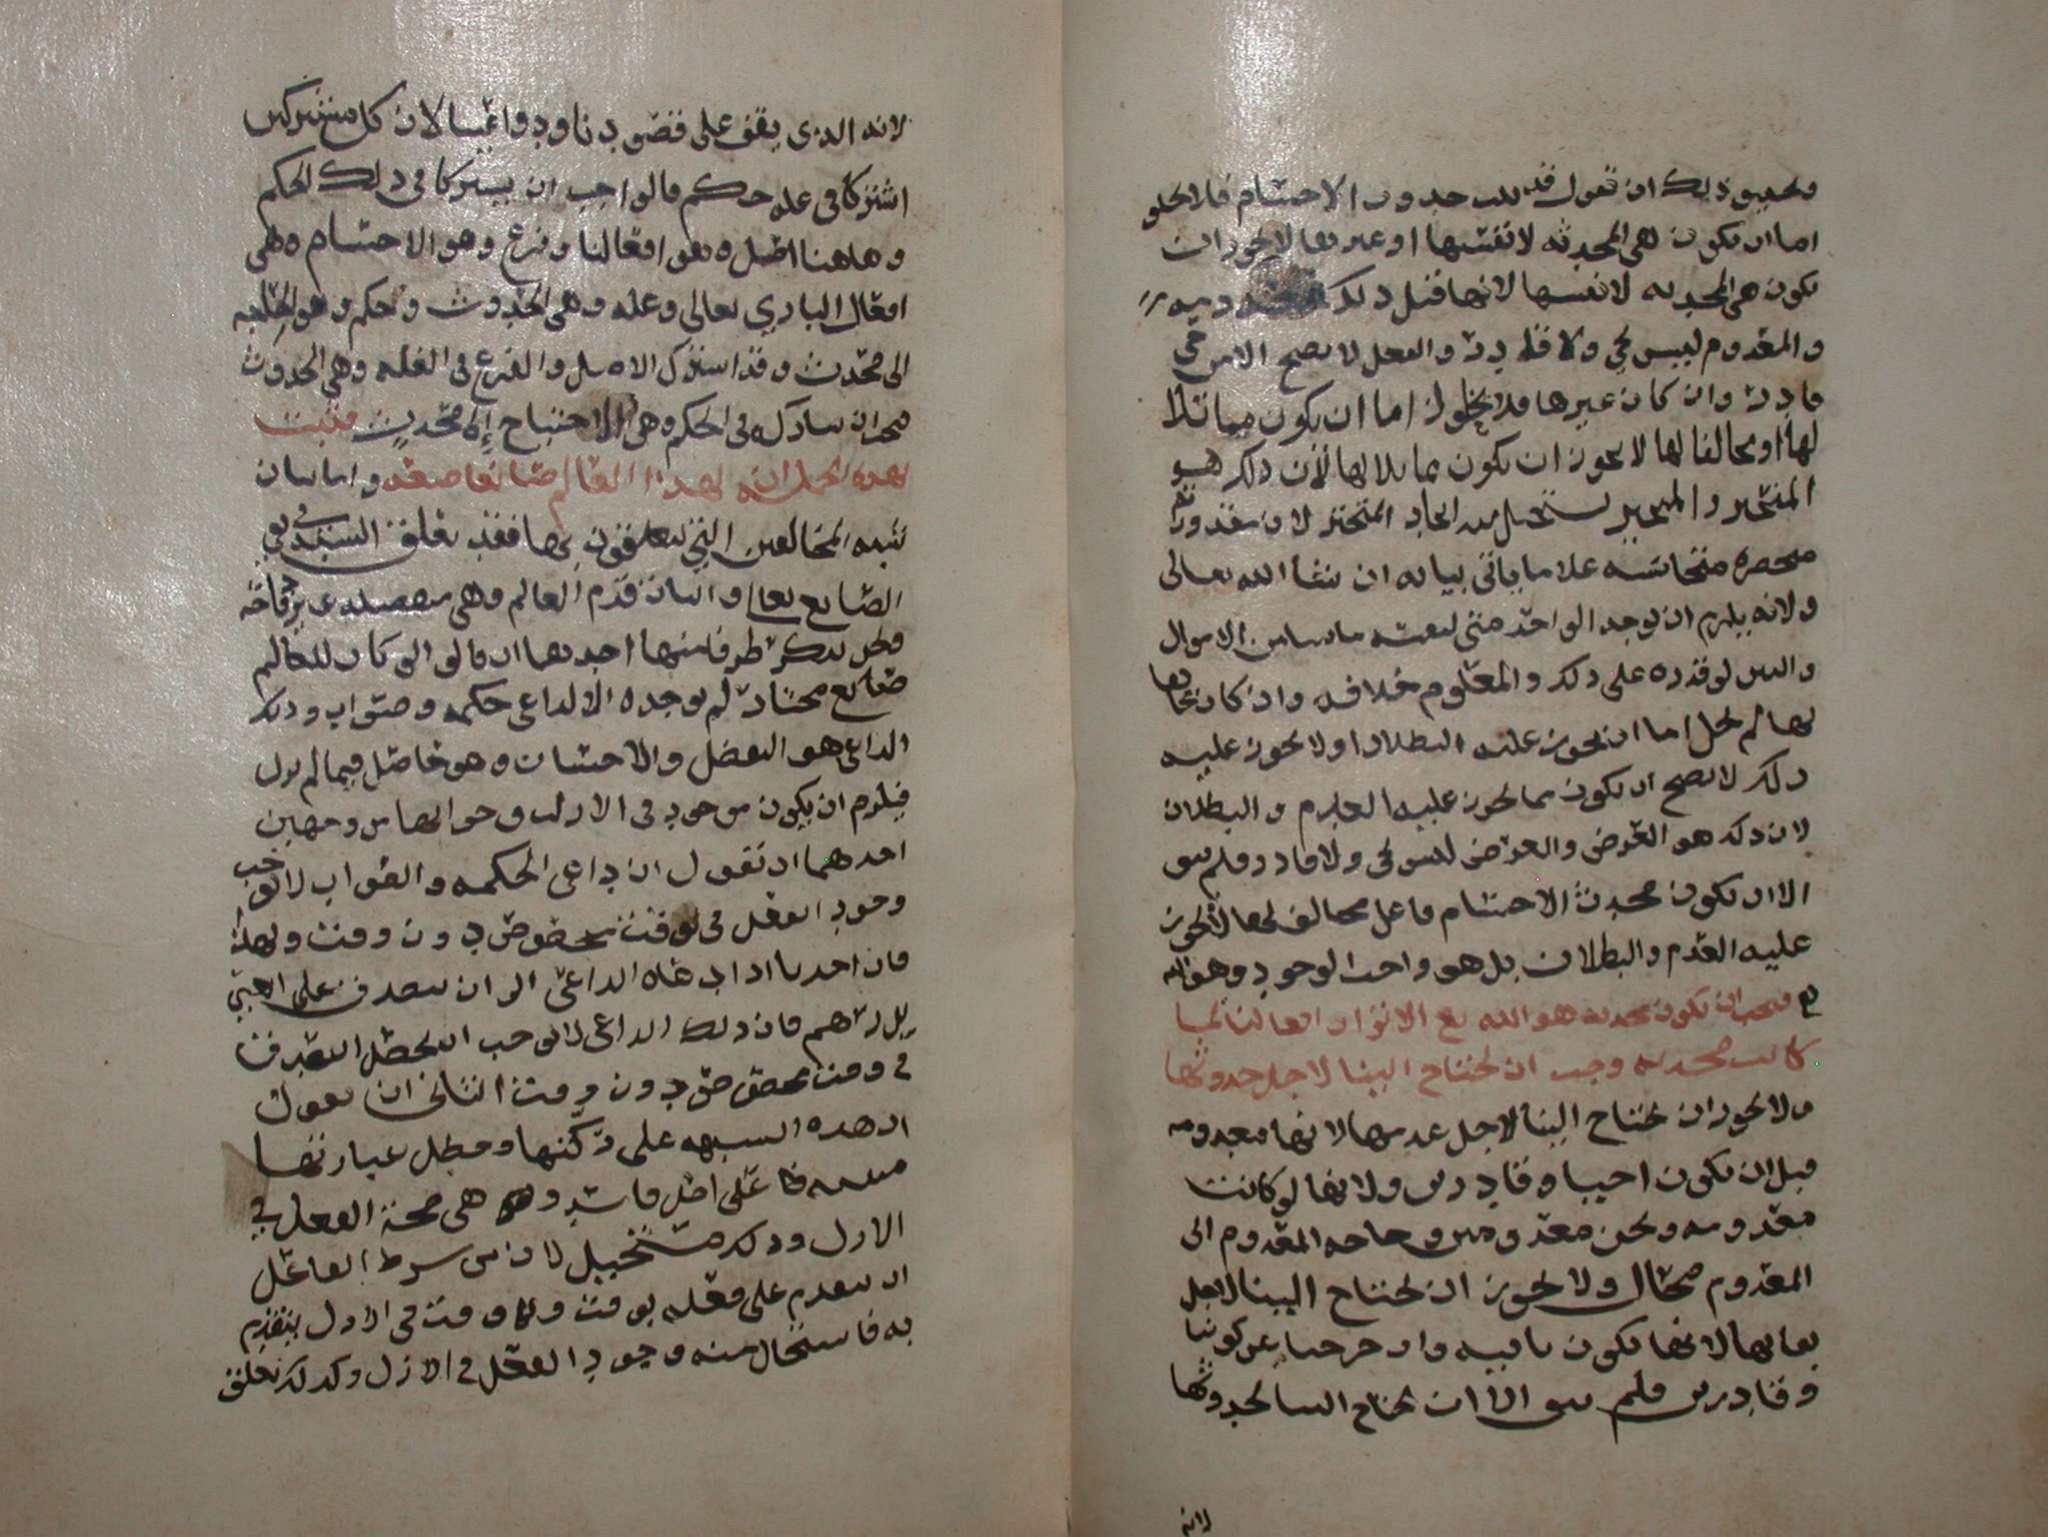 ذلك ان نقول قد حدوث الاجسام فلا تخلو
اما ان تكون هي المحدثه لانفسها او غيرها لا يجوز ان
تكون هي المحدثه لانفسها لانها قبل ذلك
والمعدوم ليس بحي ولا قادر والفعل لا يصح الا من حي
قادر وان كان غيرها فلا يخلو اما ان يكون مماثلا
لها او مخالفا لها لا يجوز ان يكون مماثلا لها لان ذلك هو
المتحيز والمتحيز يستحيل منه ايجاد المتحيز لان مقدوراته
منحصره متجانسه على ما ياتي بيانه ان شا الله تعالى
ولانه يلزم ان يوجد الواحد منا لنفسه ما شا من الاموال
والبنين لو قدره على ذلك والمعلوم خلافه وان كان مخالفا
لها لم يخل اما ان يجوز عليه البطلان او لا يجوز عليه
ذلك لا يصح ان يكون مما يجوز عليه العدم والبطلان
لان ذلك هو العرض والعرض ليس بحي ولا قادر فلم يبق
الا ان يكون محدث الاجسام فاعل مخالف لها لا يجوز
عليه العدم والبطلان بل هو واجب الوجود وهو الله
فيجب ان يكون محدثه هو الله مع الا ترا ان افعالنا لما
كانت محدثه وجب ان تحتاج الينا لاجل حدوثها
ولا يجوز ان تحتاج الينا لاجل عدمها لانها معدومه
قبل ان نكون احيا وقادرين ولانها لو كانت
معدومه ونحن معدومين وحاجه المعدوم الى
المعدوم محال ولا يجوز ان تحتاج الينا لاجل
بقايها لانها تكون باقيه وان خرجنا عن كوننا
وقادرين فلم يبق الا ان تحتاج الينا لحدوثها
لانه
لانه الذي يقف على قصودنا ودواعينا لان كل مشتركين
اشتركا في عله حكم فالواجب ان يشتركا في ذلك الحكم
وهاهنا اصل وهو افعالنا وفرع وهو الاجسام وهي
افعال الباري تعالى وعله وهي الحدوث وحكم وهو الحاجه
الى محدث وقد اشترك الاصل والفرع في العله وهي الحدوث
فيجب ان يشاركه في الحكم وهي الاحتياج الى محدث فثبت
بهذه الجمله ان لهذا العالم صانعا صنعه واما بيان
شبه المخالفين التي يتعلقون بها فقد تعلق السيد في نفي
الصانع تعالى واثبات قدم العالم وهي
ونحن نذكر طرفا منها احدها ان قالوا لو كان للعالم
صانع مختار لم يوجده الا لداعي حكمه وصواب وذلك
الداعي هو التفضل والاحسان وهو حاصل فيما لم يزل
فيلزم ان يكون موجود في الازل وجوابها من وجهين
احدهما ان نقول ان داعي الحكمه والصواب لا يوجب
وجود الفعل في وقت مخصوص دون وقت ولهذا
فان احدنا اذا دعاه الداعي الى ان يتصدق على الغير
بدرهم فان ذلك الداعي لا يوجب ان يحصل التصدق
في وقت مخصوص دون وقت الثاني ان نقول
ان هذه الشبهه على ركتها وبطل عبارتها
مبنيه على اصل فاسد وهي صحة الفعل في
الازل وذلك مستحيل لان من شرط الفاعل
ان يتقدم على فعله بوقت ولا وقت في الازل يتقدم
به فاستحال منه وجود الفعل في الازل وكذلك تعلق